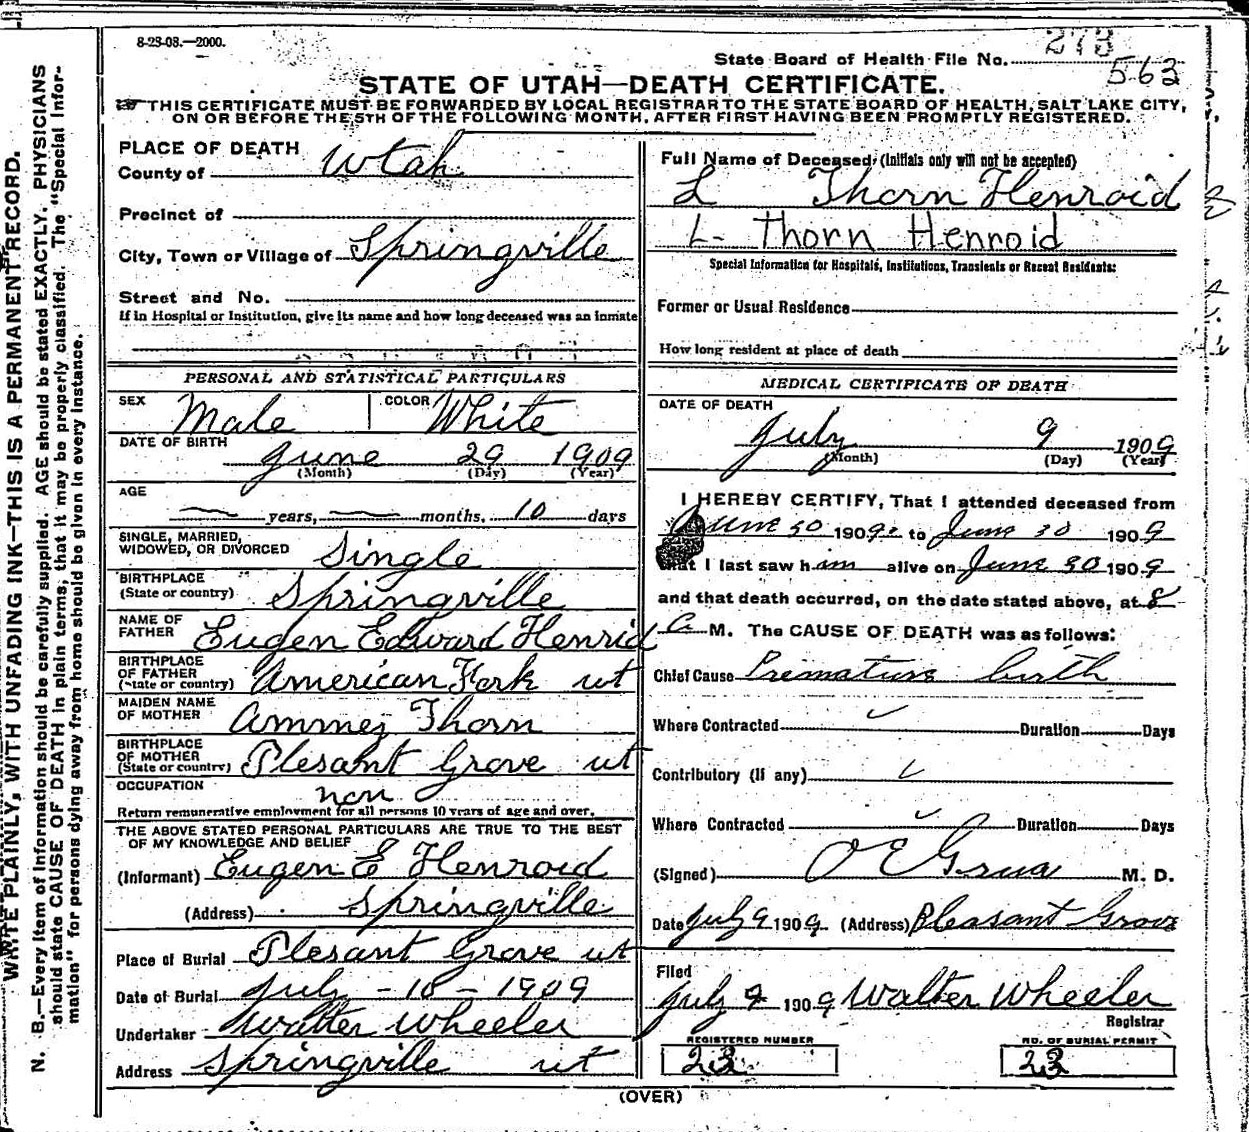 8-23-08.—2000.
273
State Board of Health File No.
563
STATE OF UTAH—DEATH CERTIFICATE.
THIS CERTIFICATE MUST BE FORWARDED BY LOCAL REGISTRAR TO THE STATE BOARD OF HEALTH, SALT LAKE CITY,
ON OR BEFORE THE 5TH OF THE FOLLOWING MONTH, AFTER FIRST HAVING BEEN PROMPTLY REGISTERED.
WRITE PLAINLY, WITH UNFADING INK—THIS IS A PERMANENT RECORD.
N. B.—Every item of information should be carefully supplied. AGE should be stated EXACTLY. PHYSICIANS
should state CAUSE OF DEATH in plain terms, that it may be properly classified. The "Special Infor-
mation" for persons dying away from home should be given in every instance.
PLACE OF DEATH
County of Utah
Precinct of
City, Town or Village of Springville
Street and No.
If in Hospital or Institution, give its name and how long deceased was an inmate
PERSONAL AND STATISTICAL PARTICULARS
SEX Male COLOR White
DATE OF BIRTH
June 29 1909
(Month) (Day) (Year)
AGE
years, months, 10 days
SINGLE, MARRIED,
WIDOWED, OR DIVORCED Single
BIRTHPLACE
(State or country) Springville
NAME OF
FATHER Eugen Edward Henrid
BIRTHPLACE
OF FATHER
(State or country) American Fork ut
MAIDEN NAME
OF MOTHER Thorn
BIRTHPLACE
OF MOTHER
(State or country) Plesant Grove ut
OCCUPATION
non
Return remunerative employment for all persons 10 years of age and over.
THE ABOVE STATED PERSONAL PARTICULARS ARE TRUE TO THE BEST
OF MY KNOWLEDGE AND BELIEF
(Informant) Eugen E Henroid
(Address) Springville
Place of Burial Plesant Grove ut
Date of Burial July - 10 - 1909
Undertaker Walter Wheeler
Address Springville ut
Full Name of Deceased: (Initials only will not be accepted)
L Thorn Henroid
L- Thorn Henroid
Special Information for Hospitals, Institutions, Transients or Recent Residents:
Former or Usual Residence
How long resident at place of death
MEDICAL CERTIFICATE OF DEATH
DATE OF DEATH
July 9 1909
(Month) (Day) (Year)
I HEREBY CERTIFY, That I attended deceased from
June 30 1909. to June 30 1909
that I last saw him alive on June 30 1909
and that death occurred, on the date stated above, at 8
a M. The CAUSE OF DEATH was as follows:
Chief Cause Premature birth
Where Contracted Duration Days
Contributory (if any)
Where Contracted Duration Days
(Signed) O E Grua M. D.
Date July 9 1909. (Address) Pleasant Grove
Filed
July 9 1909 Walter Wheeler
Registrar
REGISTERED NUMBER
23
NO. OF BURIAL PERMIT
23
(OVER)